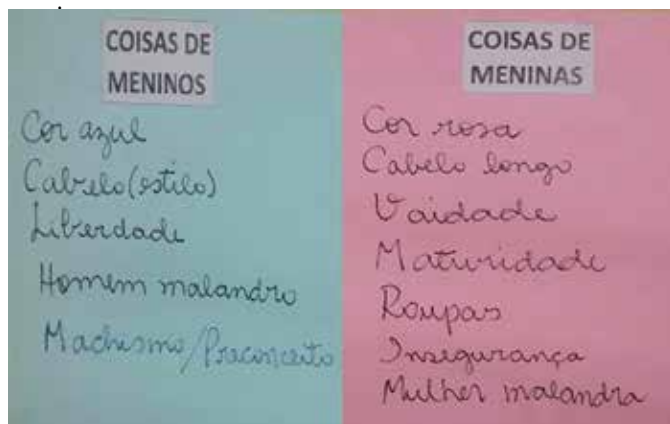 COISAS DE
MENINOS
Cor azul
Cabelo (estilo)
Liberdade
Homem malandro
Machismo/Preconceito
COISAS DE
MENINAS
Cor rosa
Cabelo longo
Vaidade
Maturidade
Roupas
Insegurança
Mulher malandra